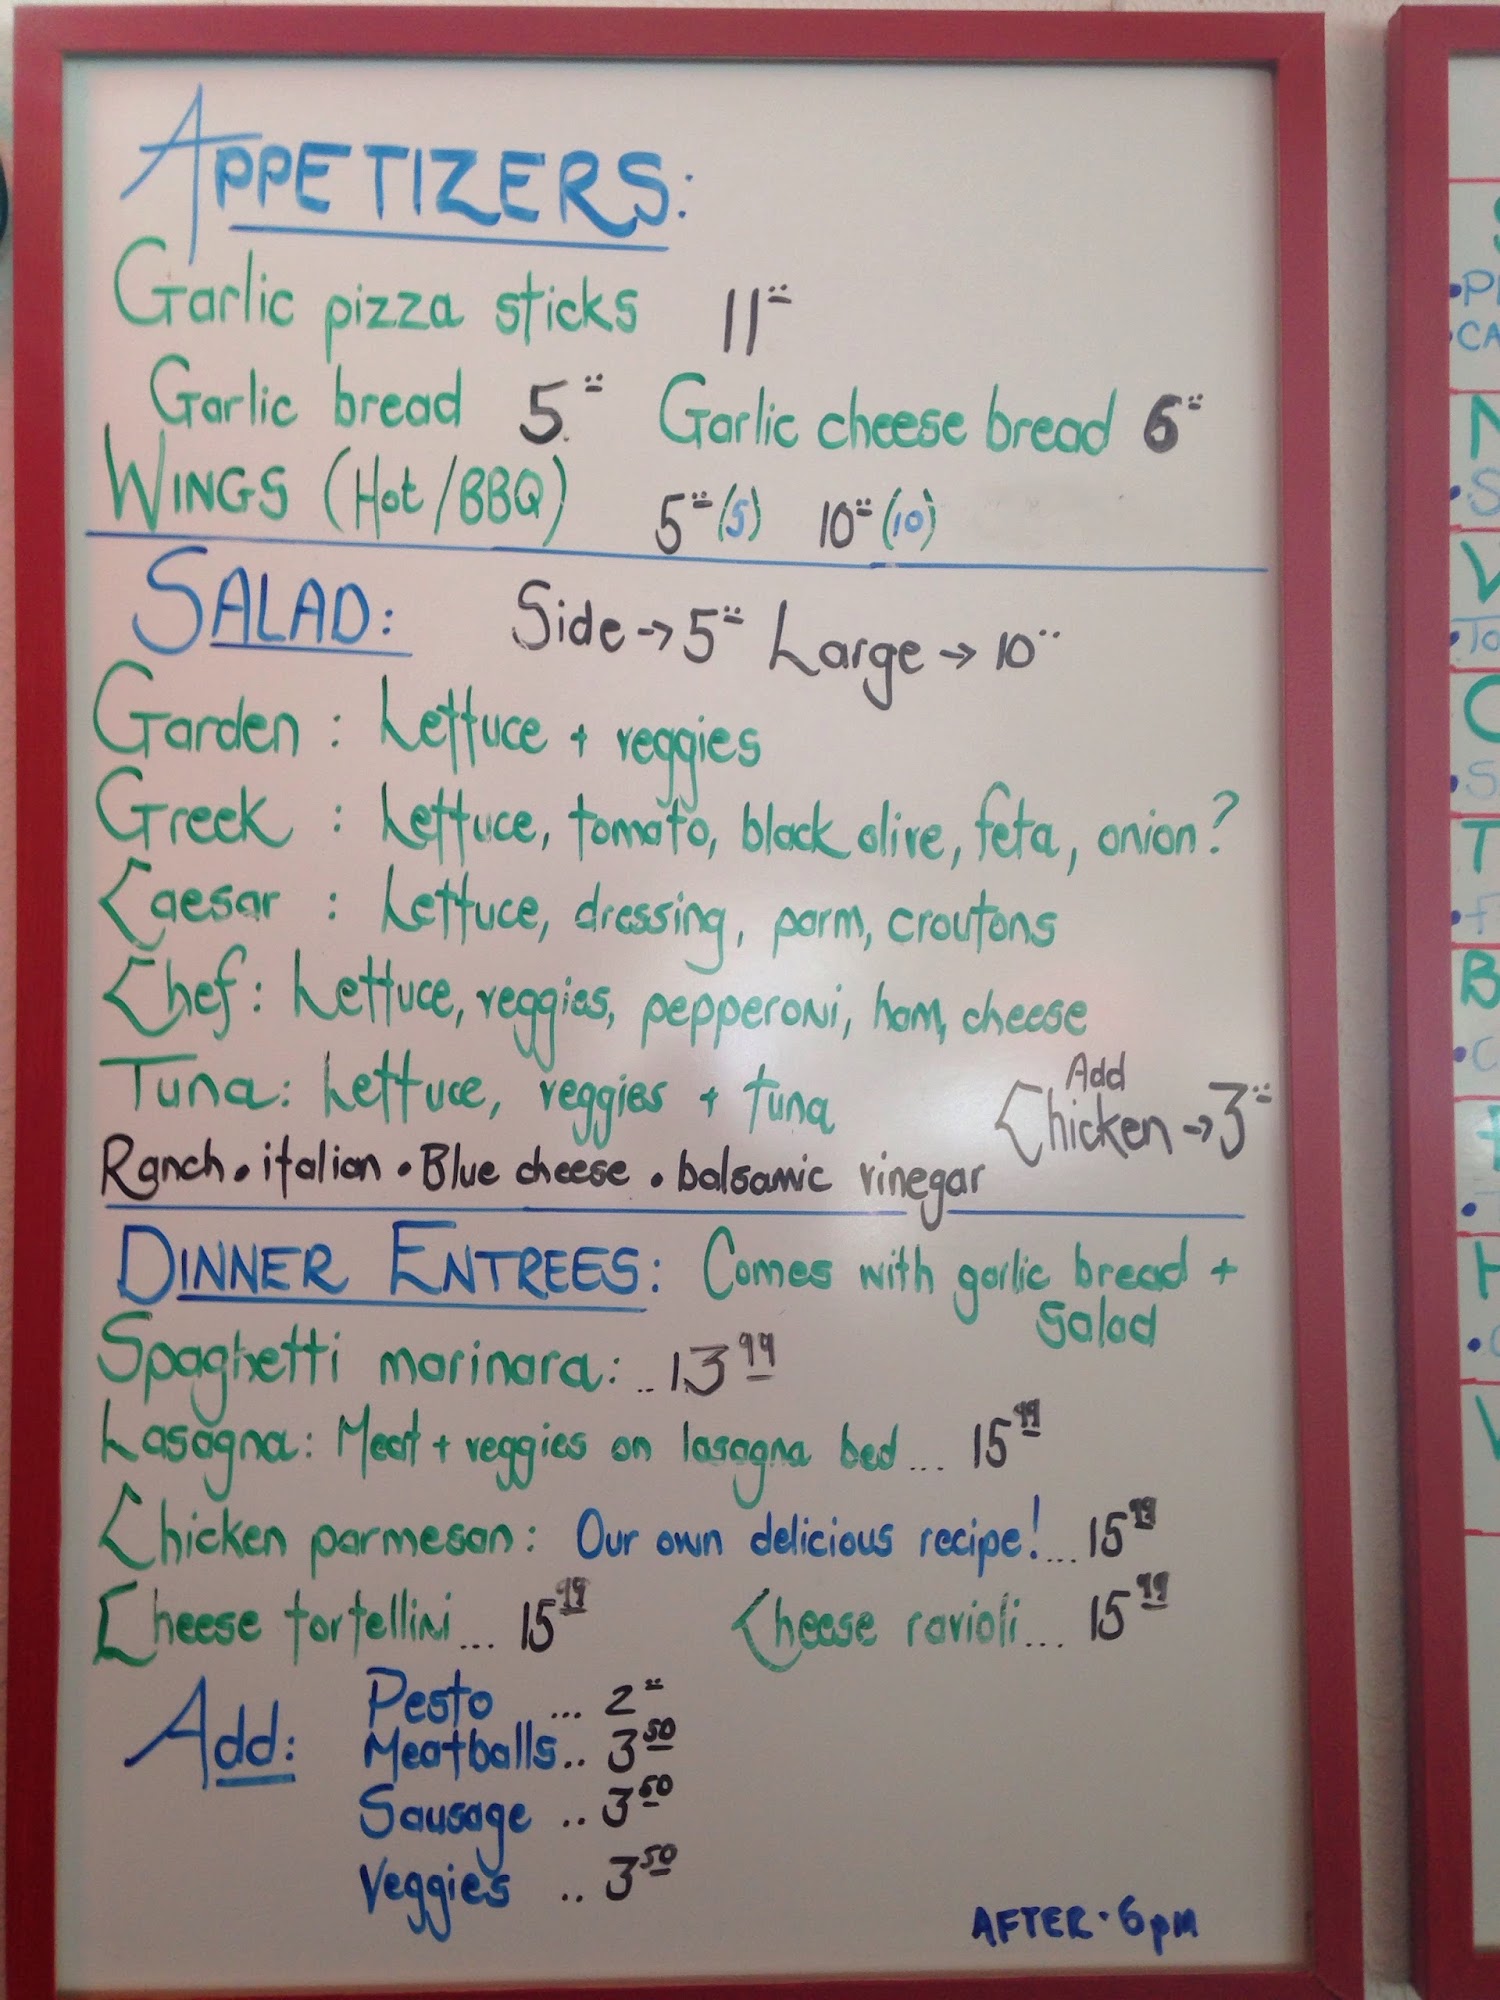 APPETIZERS:
Garlic pizza sticks 11
Garlic bread 5 Garlic cheese bread 6
WINGS (Hot/BBQ) 5 (5) 10 (10)
SALAD: Side → 5 Large → 10
Garden : Lettuce + veggies
Greek : Lettuce, tomato, black olive, feta, onion?
Caesar : Lettuce, dressing, parm, croutons
Chef: Lettuce, veggies, pepperoni, ham, cheese
Tuna: Lettuce, veggies + tuna
Add
Chicken → 3
Ranch • italian • Blue cheese • balsamic vinegar
DINNER ENTREES: Comes with garlic bread +
salad
Spaghetti marinara: .. 13 99
Lasagna: Meat + veggies on lasagna bed ... 15 99
Chicken parmesan: Our own delicious recipe! ... 15 99
Cheese tortellini ... 15 99 Cheese ravioli ... 15 99
Add: Pesto ... 2
Meatballs .. 3 50
Sausage .. 3 50
Veggies .. 3 50
AFTER • 6pm